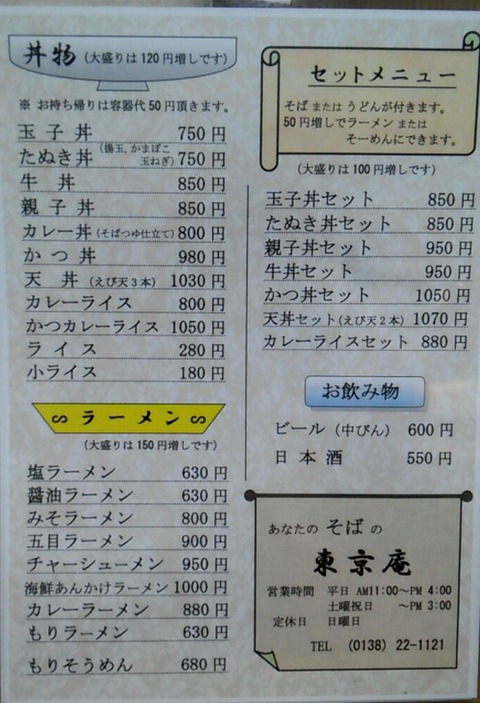 丼物 (大盛りは120円増しです)
※ お持ち帰りは容器代50円頂きます。
玉子丼 750円
たぬき丼 (揚玉,かまぼこ玉ねぎ) 750円
牛丼 850円
親子丼 850円
カレー丼 (そばつゆ仕立て) 800円
かつ丼 980円
天丼 (えび天3本) 1030円
カレーライス 800円
かつカレーライス 1050円
ライス 280円
小ライス 180円
ラーメン
(大盛りは150円増しです)
塩ラーメン 630円
醤油ラーメン 630円
みそラーメン 800円
五目ラーメン 900円
チャーシューメン 950円
海鮮あんかけラーメン 1000円
カレーラーメン 880円
もりラーメン 630円
もりそうめん 680円
セットメニュー
そば または うどんが付きます。
50円増しでラーメン または
そーめんにできます。
(大盛りは100円増しです)
玉子丼セット 850円
たぬき丼セット 850円
親子丼セット 950円
牛丼セット 950円
かつ丼セット 1050円
天丼セット(えび天2本) 1070円
カレーライスセット 880円
お飲み物
ビール (中びん) 600円
日本酒 550円
あなたの そば の
東京庵
営業時間 平日 AM11:00～PM 4:00
土曜祝日 ～PM 3:00
定休日 日曜日
TEL (0138) 22-1121